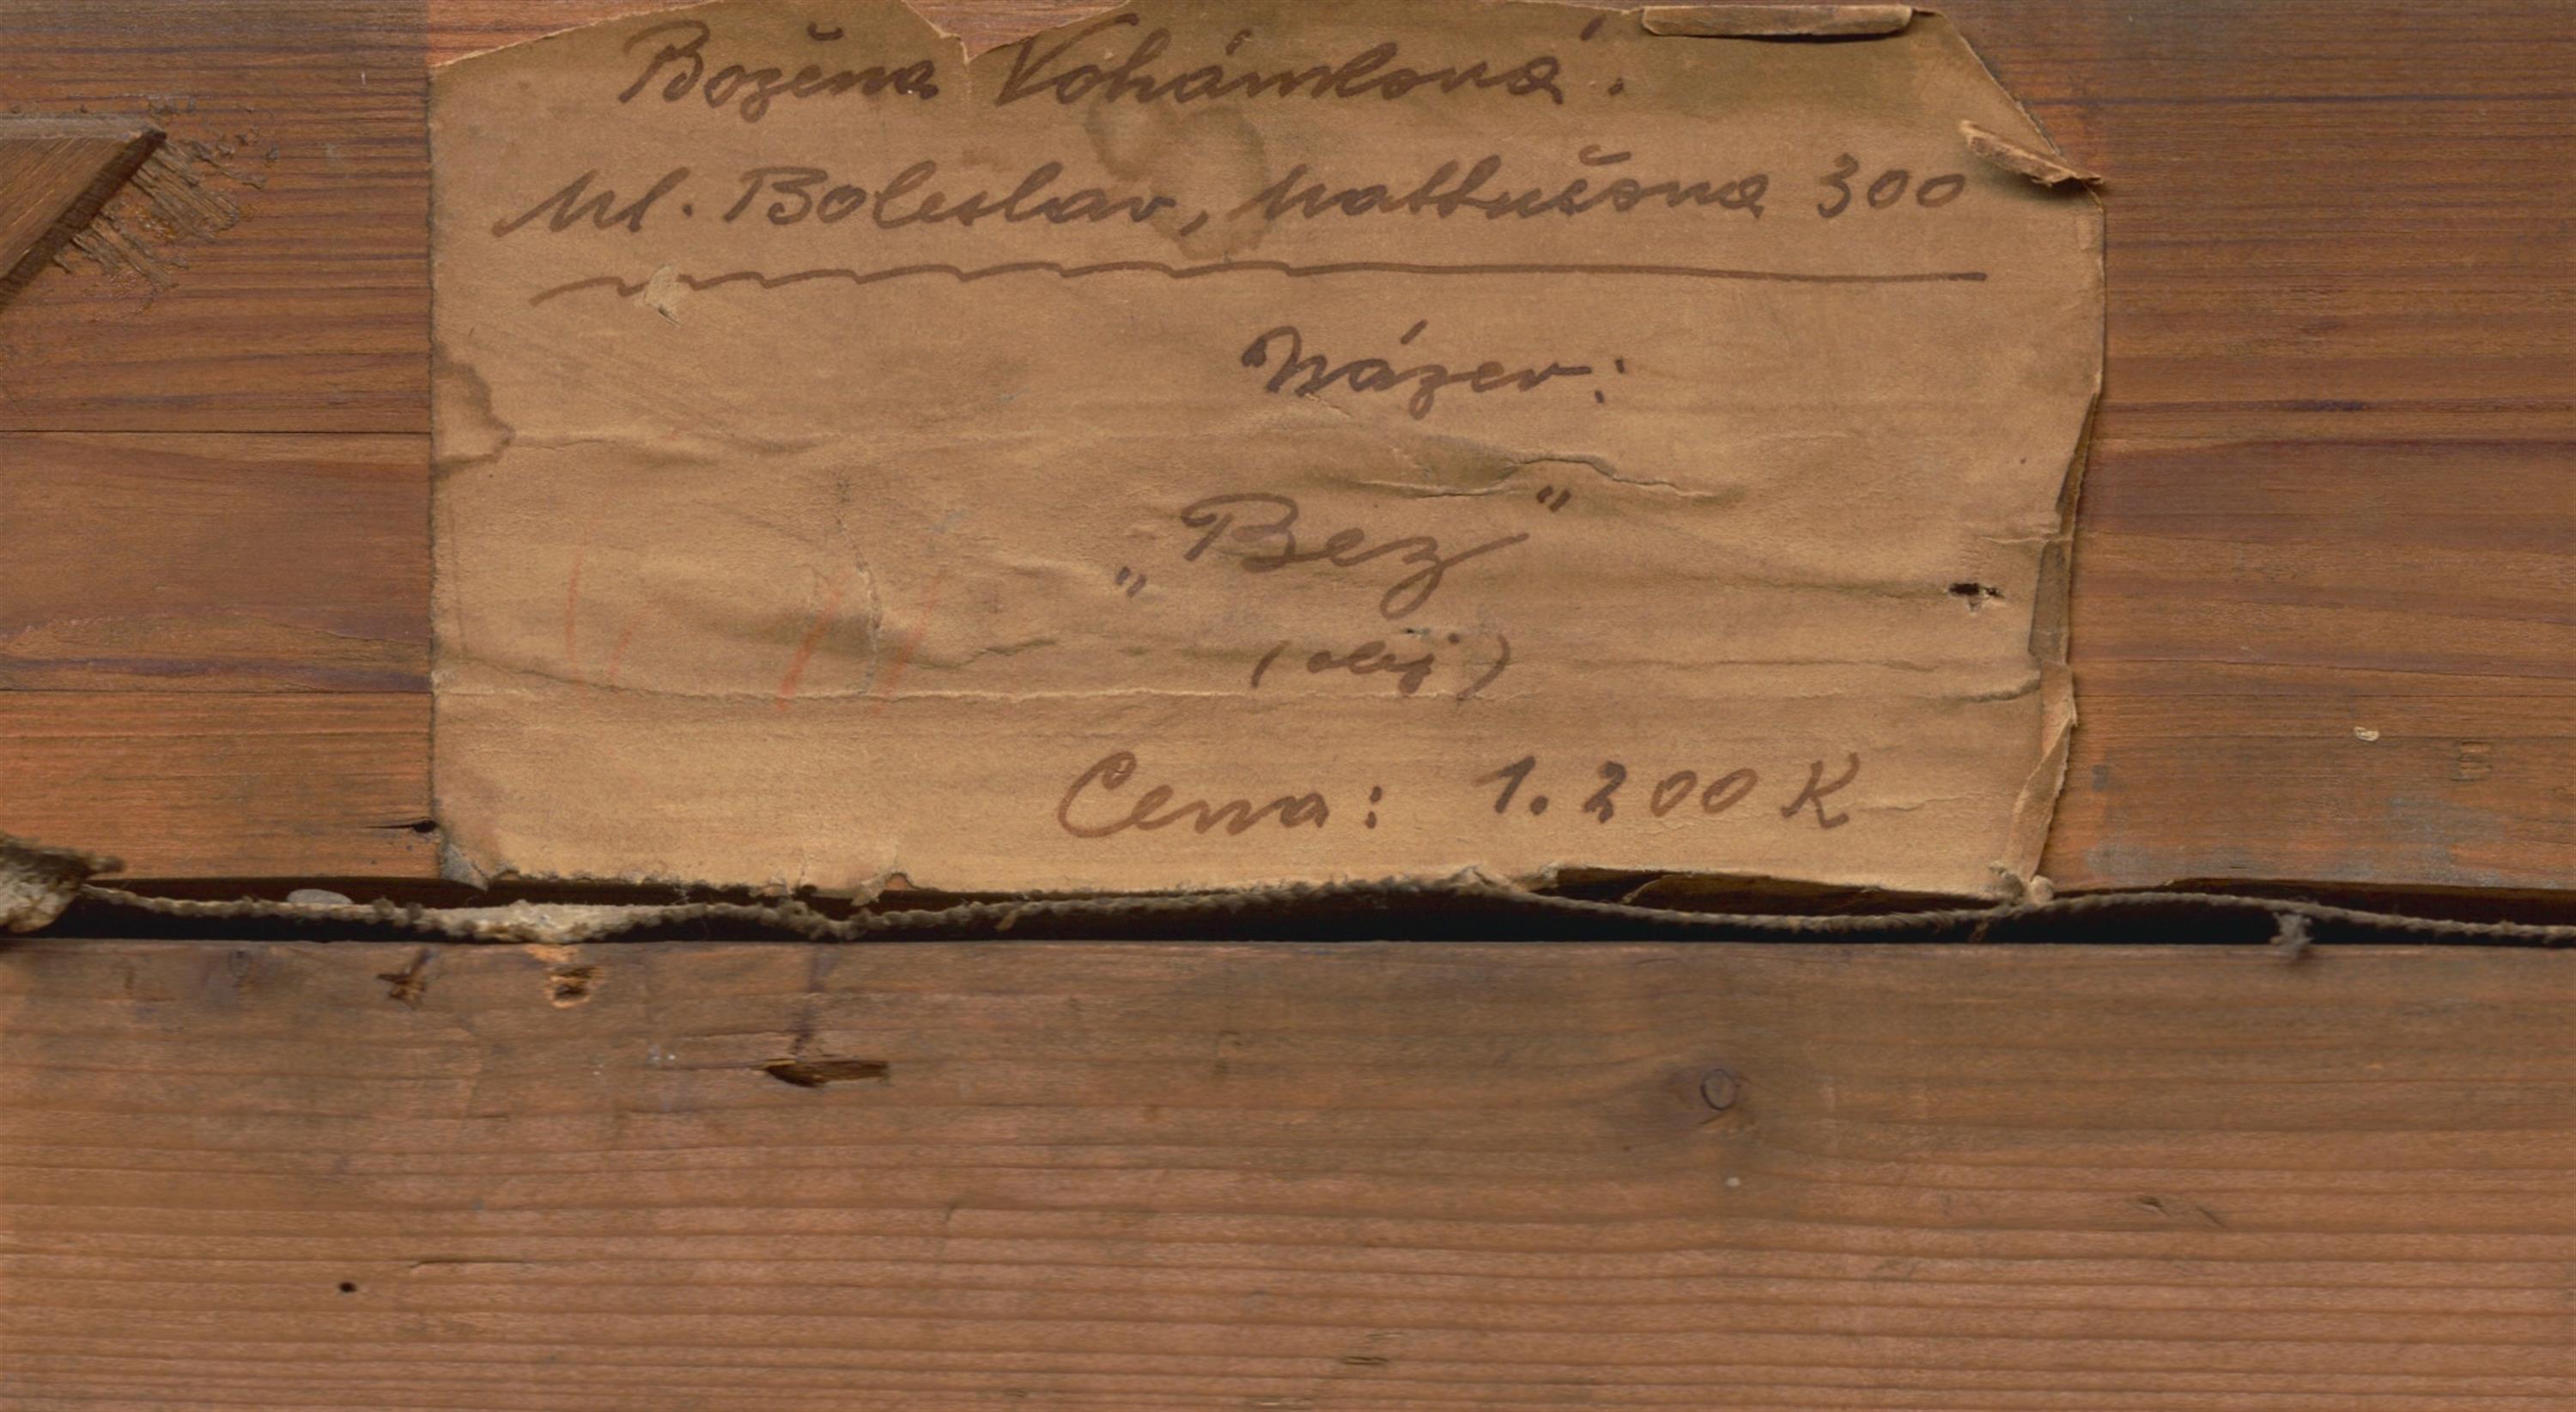 Božena Vohánková.
Ml. Boleslav, Mattušova 300
Název:
„Bez"
(olej)
Cena: 1.200 K